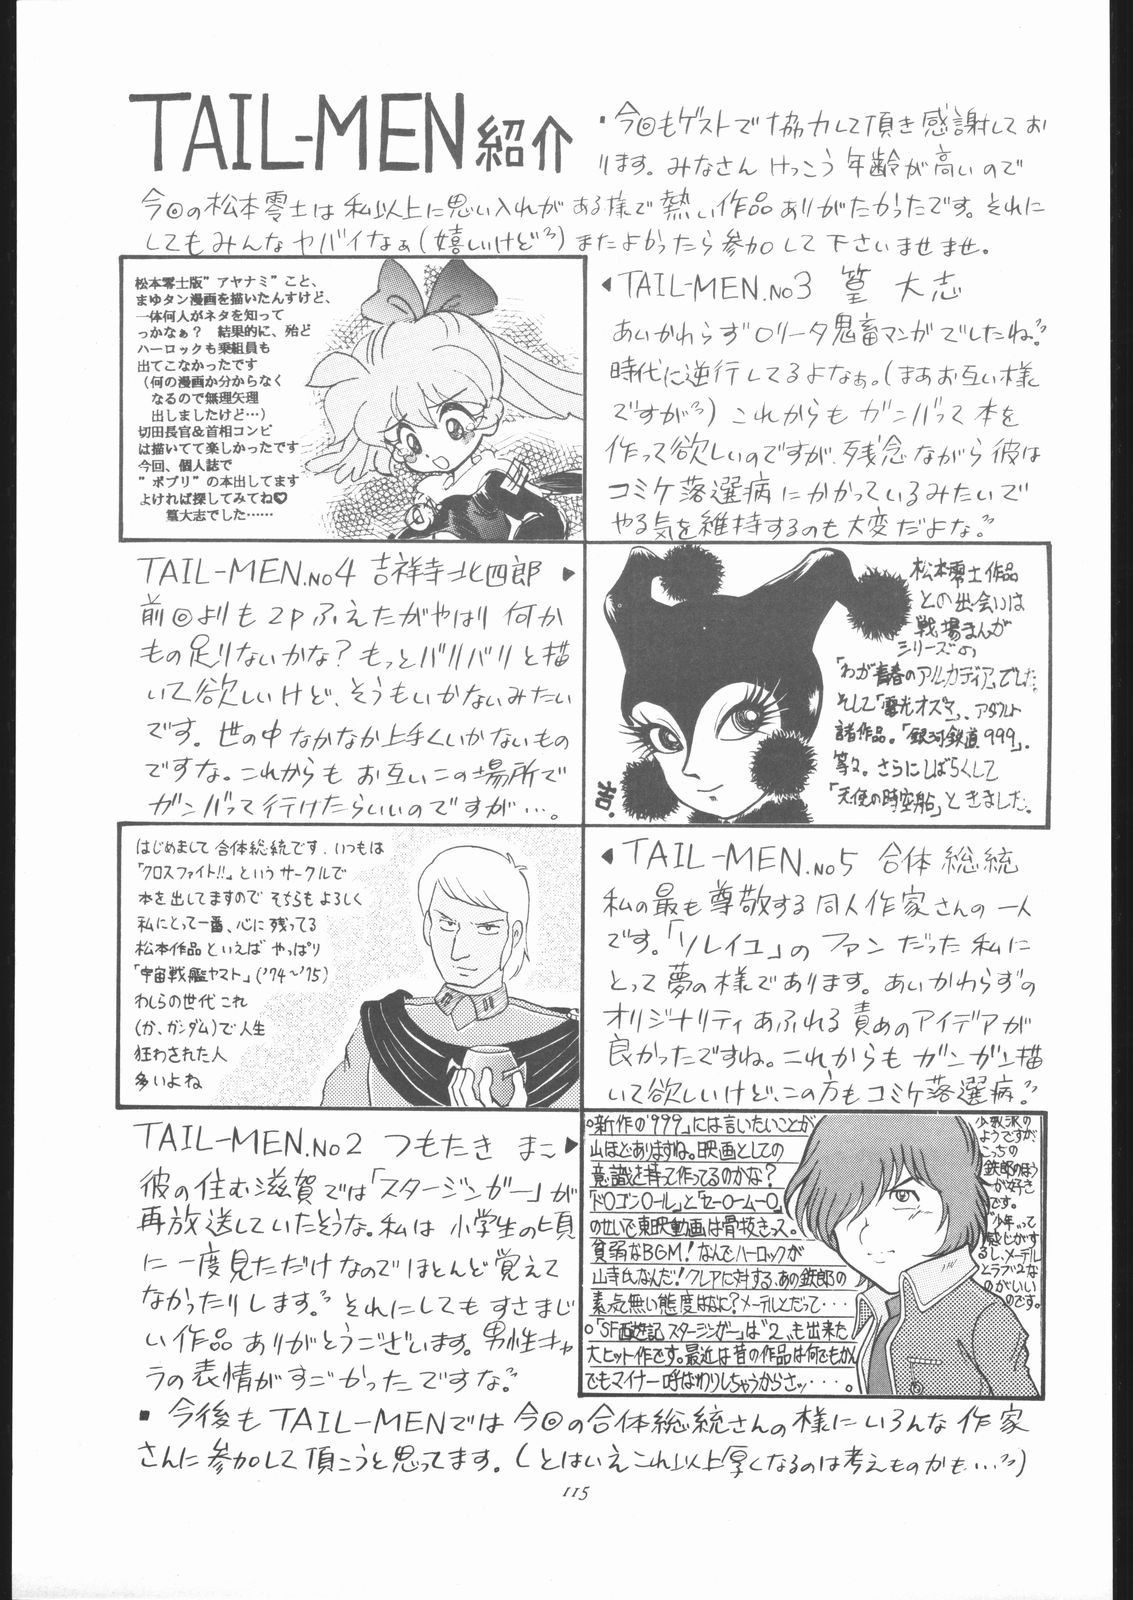 TAIL-MEN紹介
・今回もゲストで協力して頂き感謝してお
ります。みなさん けっこう 年齢が高いので
今回の松本零士は 私以上に思い入れが ある様で 熱い作品ありがたかったです。それに
してもみんなヤバイなぁ(嬉しいけど〃)またよかったら参加して下さいませませ。
松本零士版"アヤナミ"こと、
まゆタン漫画を描いたんすけど、
一体何人がネタを知って
っかなぁ? 結果的に、殆ど
ハーロックも乗組員も
出てこなかったです
(何の漫画か分からなく
なるので無理矢理
出しましたけど…)
切田長官&首相コンビ
は描いてて楽しかったです
今回、個人誌で
"ポプリ"の本出してます
よければ探してみてね♡
篁大志でした……
◀TAIL-MEN.No3 篁 大志
あいかわらずロリータ鬼畜マンガでしたね〃
時代に逆行してるよなぁ。(まあお互い様
ですが〃) これからも ガンバって 本を
作って欲しいのですが、残念ながら彼は
コミケ落選病 にかかっているみたいで
やる気を維持するのも大変だよな。〃
TAIL-MEN.No4 吉祥寺北四郎▶
前回よりも 2Pふえたがやはり 何か
もの足りないかな? もっとバリバリと描
いて欲しいけど、そうもいかないみたい
です。世の中なかなか上手くいかないもの
ですな。これからも お互いこの場所で
ガンバって行けたらいいのですが…。
松本零士作品
との出会いは
戦場まんが
シリーズの
「わが青春のアルカディア」でした。
そして「電光オズマ」、アダルト
諸作品。「銀河鉄道999」.
等々。さらにしばらくして
「天使の時空船」ときました。
はじめまして 合体総統です. いつもは
「クロスファイト!!」というサークルで
本を出してますので そちらもよろしく
私にとって一番、心に残ってる
松本作品といえば やっぱり
「宇宙戦艦ヤマト」('74〜'75)
わしらの世代これ
(か、ガンダム)で人生
狂わされた人
多いよね
◀TAIL-MEN.No5 合体総統
私の最も尊敬する同人作家さんの一人
です。「ソレイユ」のファン だった 私に
とって夢の様であります。あいかわらずの
オリジナリティあふれる責めのアイデアが
良かったですね。これからもガンガン描
いて欲しいけど、この方もコミケ落選病〃
TAIL-MEN.No2 つもたき まこ▶
彼の住む滋賀では「スタージンガー」が
再放送していたそうな。私は 小学生の頃
に一度見ただけなのでほとんど覚えて
なかったりします。〃 それにしてもすさまじ
い作品ありがとうございます。男性キャ
ラの表情がすごかったですな。〃
○新作の「999」には言いたいことが
山ほどありますね。映画としての
意識を持って作ってるのかな?
「ドOゴンOール」と「セーOームーO」
のせいで東映動画は骨抜きっス。
貧弱なBGM! なんでハーロックが
山寺氏なんだ! クレアに対する、あの鉄郎の
素っ気無い態度はなに? メーテルとだって・・・
○「SF西遊記スタージンガー」は"2"も出来た
大ヒット作です。最近は昔の作品は何でもかん
でもマイナー呼ばわりしちゃうからさッ・・・・。
少数派の
ようですが、
こっちの
鉄郎のほう
が好き
です。
"少年"って
感じがす
るし、メーテル
とラブ2な
のがいい
のです。
・今後もTAIL-MENでは今回の合体総統さんの様にいろんな作家
さんに参加して頂こうと思ってます。(とはいえこれ以上厚くなるのは考えものかも…〃)
115